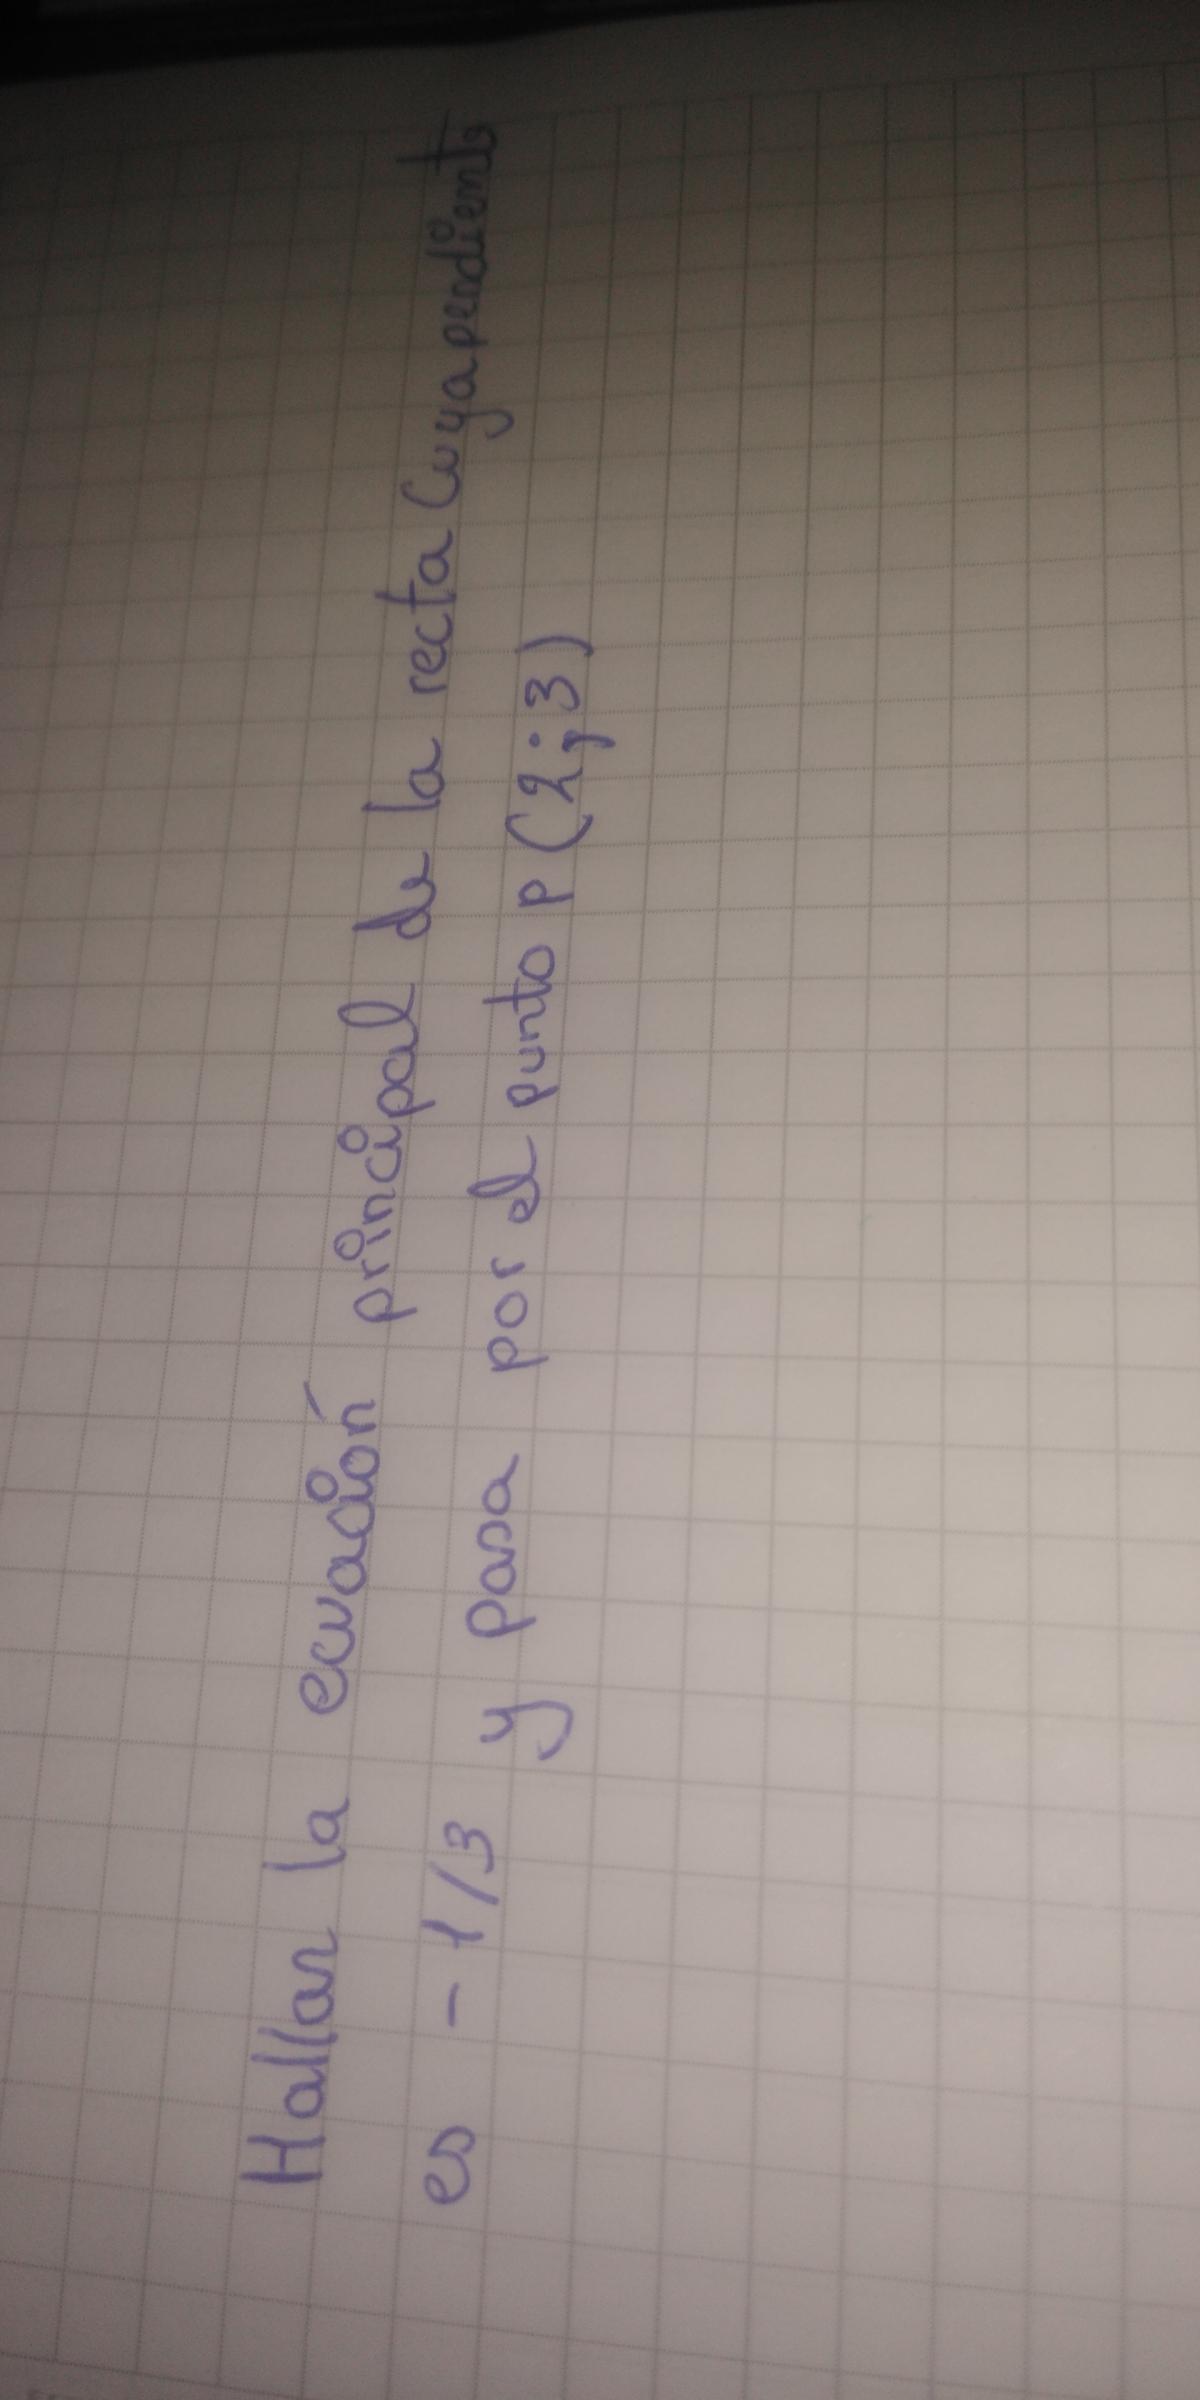 Hallar la ecuación principal de la recta Cuya pendiente
es - 1/3 y pasa por el punto P (2;3)